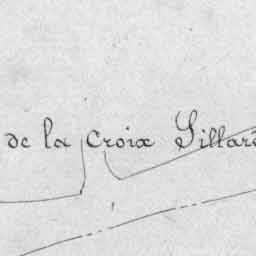 de la Croix Sillar